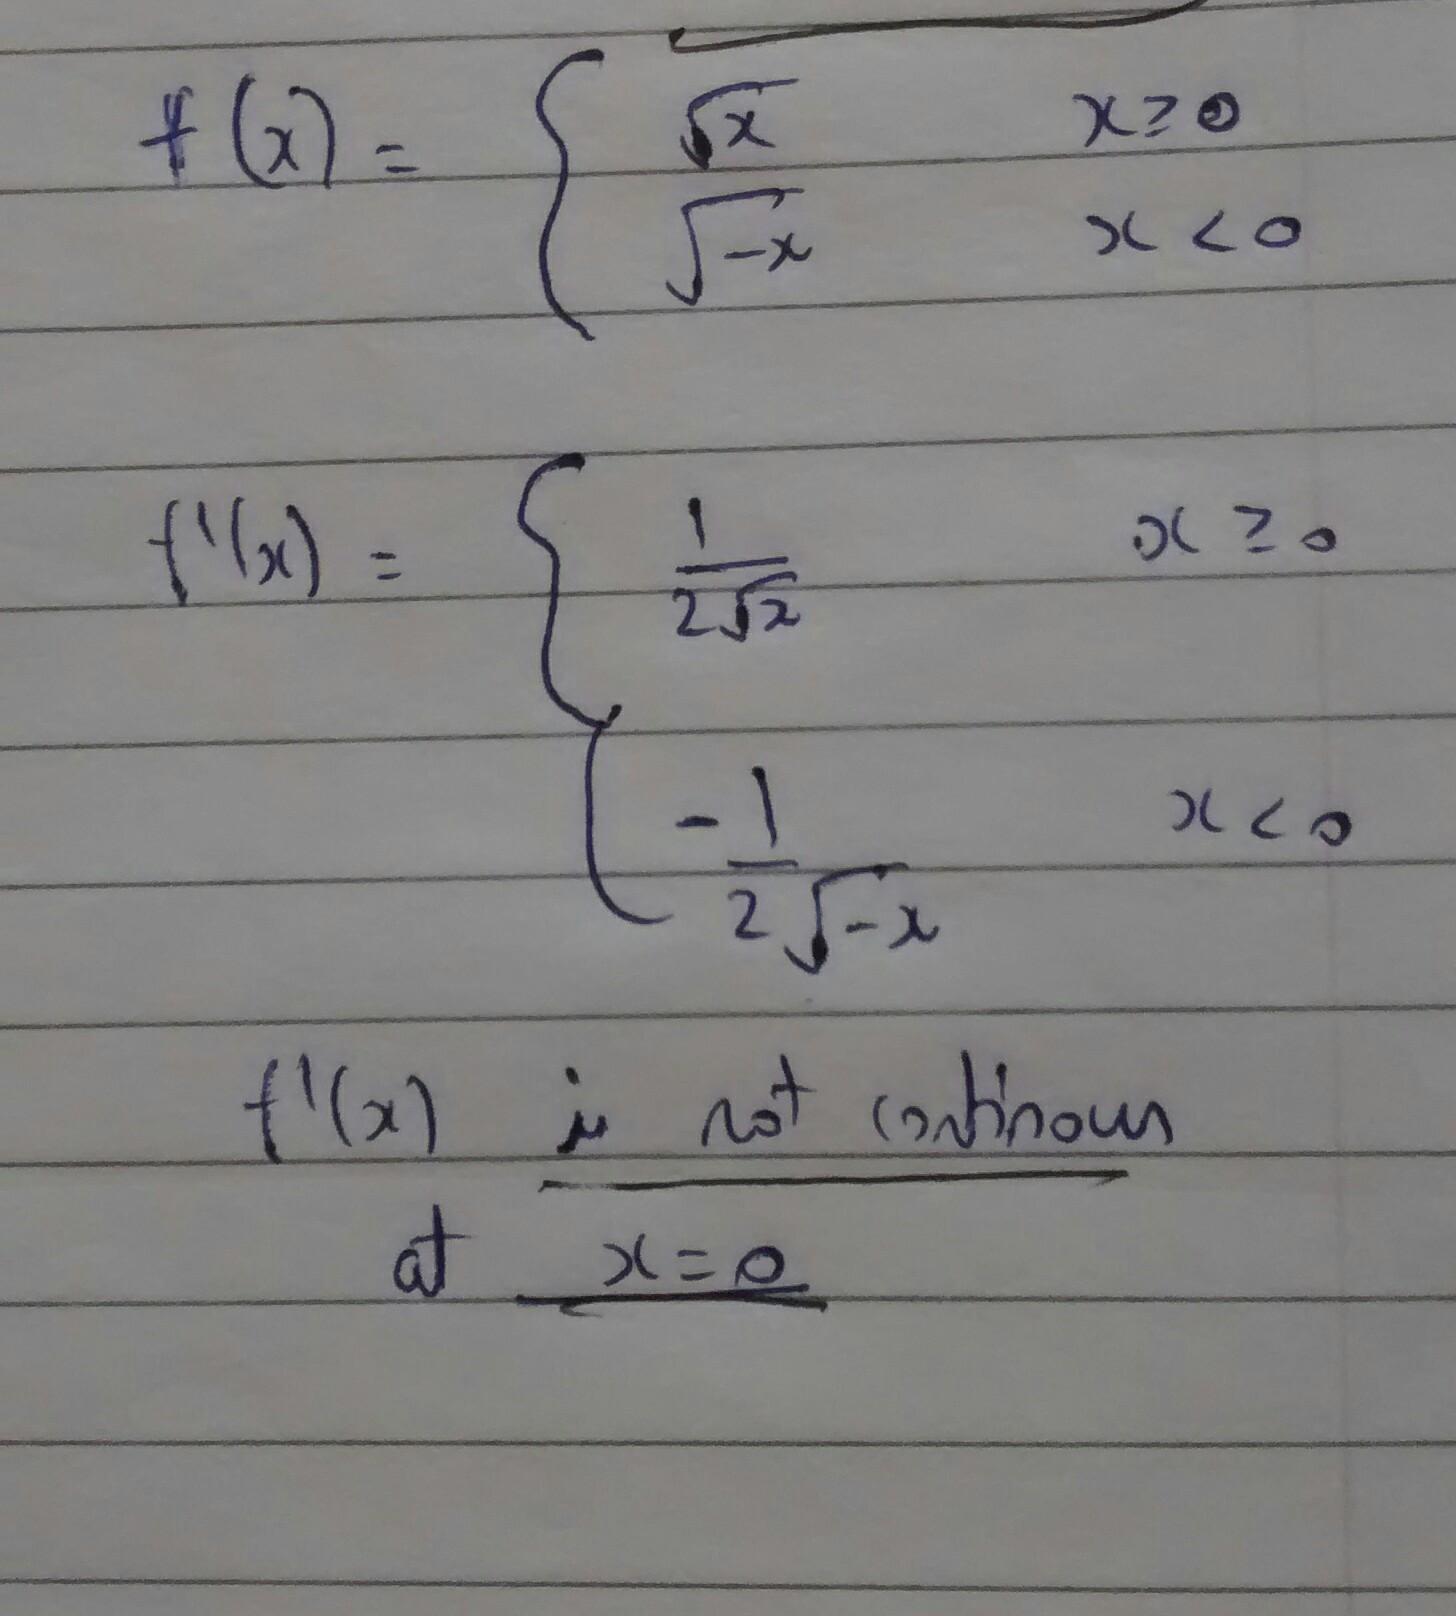 f(x) = { √x x ≥ 0
√-x x < 0
f'(x) = { 1/2√x x ≥ 0
-1/2√-x x < 0
f'(x) is not continous
at x = 0